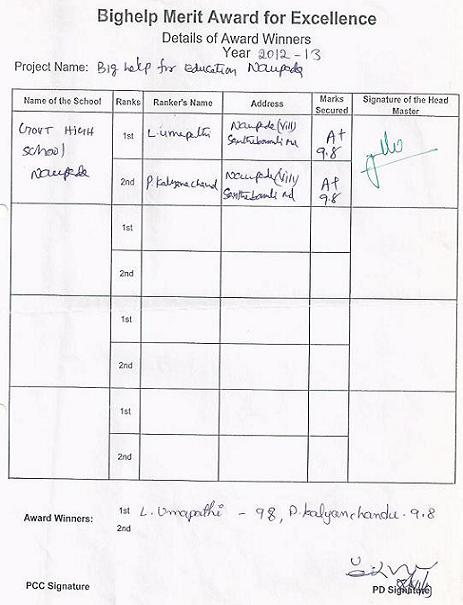 Bighelp Merit Award for Excellence
Details of Award Winners
Year 2012-13
Project Name: Big help for Education Naupada
Name of the School Ranks Ranker's Name Address Marks Secured Signature of the Head Master
Govt High School Naupada 1st L. Umapathi Naupada (Vill) A+ 9.8
2nd P. Kalyana chand Naupada (Vill) A+ 9.8
1st
2nd
1st
2nd
1st
2nd
Award Winners: 1st L. Umapathi - 98, P. Kalyanchandu. 9.8
2nd
PCC Signature PD Signature